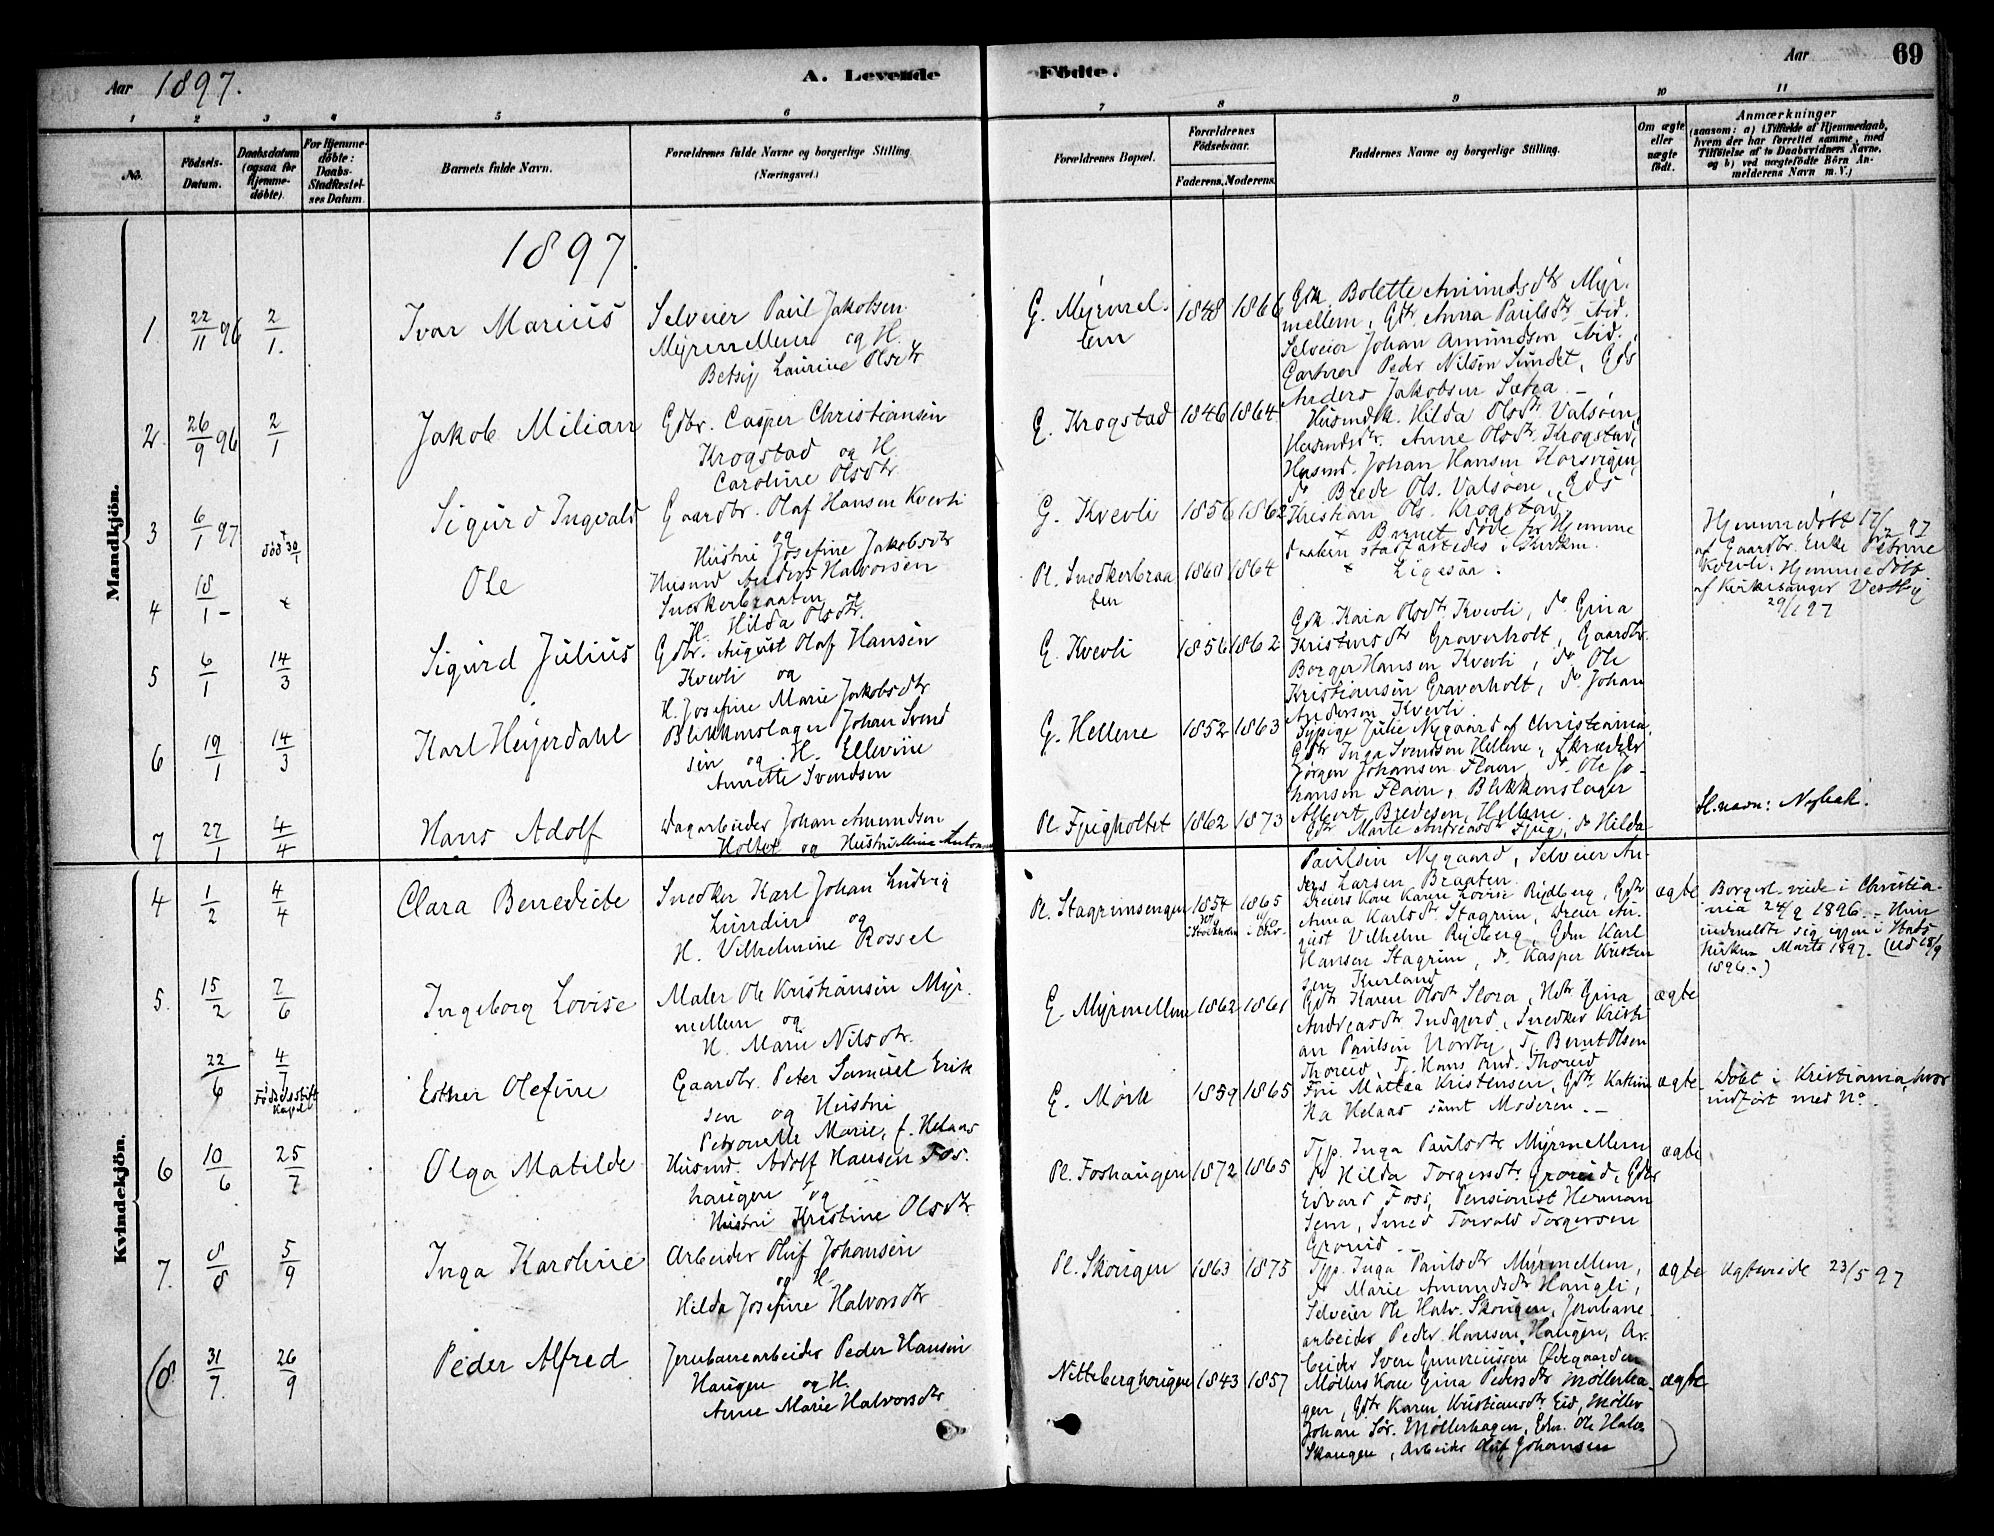 Aar 1897.
A. Levende
Födte.
Aar
69
1 2 3 4 5 6 7 8 9 10 11
No.
Födsels-
Datum.
Daabsdatum
(ogsaa for
Hjemme-
döbte).
For Hjemme-
döbte:
Daabs-
Stadfæstel-
ses Datum.
Barnets fulde Navn.
Forældrenes fulde Navne og borgerlige Stilling.
(Næringsvei.)
Forældrenes Bopæl.
Forældrenes
Födselsaar.
Faderens.
Moderens.
Faddernes Navne og borgerlige Stilling.
Om ægte
eller
uægte
födt.
Anmærkninger
(saasom: a) i Tilfælde af Hjemmedaab,
hvem der har forrettet samme, med
Tilföielse af to Daabsvidners Navne,
og b) ved uægtefödte Börn An-
melderens Navn m. V.)
Mandkjön.
1897.
1. 22/11 96 2/1.
Ivar Marius
Selveier Paul Jakobsen
Myrmellem og H.
Betsy Laurine Olsdtr
G. Myrmel-
lem
1848 1866
Gdk. Bolette Amundsdtr Myr-
mellem, Gdtr Anna Paulsdtr ibid.
Selveier Johan Amundsen ibid.,
Gartner Peder Nilsen Sundet, Gds
Anders Jakobsen Sætra. —
2. 26/9 96 2/1
Jakob Milian
Gdbr. Casper Christiansen
Krogstad og H.
Caroline Olsdtr.
G. Krogstad
1846 1864
Husmdk. Hilda Olsdtr Valsøen,
Husmdsdtr. Anne Olsdtr Krogstad,
Husmd. Johan Hansen Korsvigen,
do Brede Ols. Valsøen, Gds
Kristian Ols. Krogstad.
3 6/1 97 død 30/1
Sigurd Ingvald
Gaardbr. Olaf Hansen Kvevli
og
Hustru Josefine Jakobsdtr
G. Kvevli
1856 1862
Barnet døde før Hjemme
daaben stadfæstedes i Kirken.
Hjemmedøbt 17/1 97
af Gaardbr. Enke Petrine
Kvevli.
4 18/1 —
Ole
Husmd Anders Halvorsen
Snedkerbraaten
H. Hilda Olsdtr.
Pl. Snedkerbraa
ten
1860 1864
Ligesaa.
Hjemmedøbt
af Kirkesanger Vestby
29/1 97
5 6/1 14/3
Sigurd Julius
Gdbr. August Olaf Hansen
Kvevli og
H. Josefine Marie Jakobsdtr
G. Kvevli
1856 1862
Gdk. Kaia Olsdtr Kvevli, do Gina
Kristensdtr Graverholt, Gaardbr.
Borger Hansen Kvevli, do Ole
Kristiansen Graverholt, do Johan
Andersen Kvevli
6 19/1 14/3
Karl Heyerdahl
Blikkenslager Johan Svend
sen og H. Ellevine
Annette Svendsen
G. Hellene
1852 1863
Sypige Julie Nygaard af Christiania,
Gdtr Inga Svendsen Hellene, Skrædder
Jørgen Johansen Flaen, do Ole Jo-
hansen Flaen, Blikkenslager
Albert Bredesen, Hellene.
7 27/1 4/4
Hans Adolf
Dagarbeider Johan Amundsen
Holtet og Hustru Mina
Pl. Fjugholtet
1862 1873
Gdtr Marte Andreasdtr Fjug, do Hilda
Paulsen Nygaard, Selveier An-
ders Larsen Braaten.
Sl.navn: Nybak.
Kvindekjön.
4 1/2 4/4
Clara Benedicte
Snedker Karl Johan Ludvig
Lundin og
H. Vilhelmine Rossel
Pl. Stagrimsengen
1854 1865
Dreiers Kone Karen Lovise Rydberg, Gdtr
Anna Karlsdtr Stagrim, Dreier Au-
gust Vilhelm Rydberg, Gdm Karl
Hansen Stagrim, do Kasper Kristen
sen Kurland
ægte
Borgerl. viede i Christia-
nia 24/9 1896. – Hun
indmeldte sig igjen i Stats
kirken Marts 1897. (Ud 18/9
1896. –)
5. 15/2 7/6
Ingeborg Lovise
Maler Ole Kristiansen Myr-
mellem og
H. Marie Nilsdtr.
G. Myrmellem
1862 1861
Gdtr Karen Olsdtr Slora, Hdtr Gina
Andreasdtr Indgjerd, Snedker Kristi
an Paulsen Nordby, T. Bernt Olsen
Thoreid, T. Hans Rud. Thoreid
ægte
22/6 4/7
Fødselsstift
Kapel
Esther Olefine
Gaardbr. Peter Samuel Erik
sen og Hustru
Petronelle Marie, f. Helaas
G. Mørk
1859 1865
Fru Mattea Kristensen, Gdtr Kathin
ka Helaas samt Moderen. —
ægte
Døbt i Kristiania, hvor
indført med No.
6 10/6 25/7
Olga Matilde
Husmd. Adolf Hansen Fos-
haugen og
Hustru Kristine Olsdtr.
Pl. Foshaugen
1872 1865
Tjp. Inga Paulsdtr Myrmellem
do Hilda Torgersdtr. Groeid, Gdbr
Edvard Foss, Pensionist Herman
Sem, Smed Torvald Torgersen
Groeid
ægte
7. 8/8 5/9
Inga Karoline
Arbeider Oluf Johansen
og H.
Hilda Josefine Halvorsdtr
Pl. Skougen
1863 1875
Tjp. Inga Paulsdtr Myrmellem,
do Marie Amundsdtr Haugli,
Selveier Ole Halv. Skougen, Jernbane-
arbeider Peder Hansen Haugen, Ar-
beider Sven Gunneriussen Ødegaarden
ægte
Ægteviede 23/5 97
(8. 31/7. 26/9
Peder Alfred
Jernbanearbeider Peder Hansen
Haugen og H.
Anne Marie Halvorsdtr
Nitteberghougen
1843 1857
Møllers Kone Gina Pedersdtr Møllerha-
gen, Gdtr Karen Kristiansdtr Eid, Møller
Johan Sør. Møllerhagen, Edm. Ole Halv.
Skaugen, Arbeider Oluf Johansen
ægte